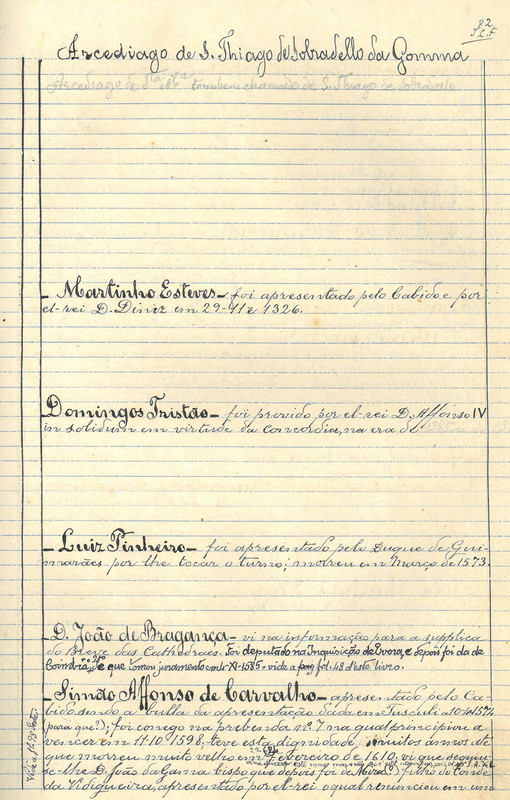 82
Arcediago de S. Thiago de Sobradello da Gomma
Arcediago de Sta também chamado de S. Thiago de Sobradelo
– Martinho Esteves – foi apresentado pelo Cabido e por
el-rei D. Diniz em 29-11 1326.
Domingos Tristão – foi provido por el-rei D. Affonso IV
in solidum em virtude da Concordia, na era de
– Luiz Pinheiro – foi apresentado pelo Duque de Gui-
marães por lhe tocar o turno; morreu em Março de 1573.
– D. João de Bragança – vi na informação para a supplica
do Breve das Cathedraes. Foi deputado na Inquisição de Evora, e depois foi da de
Coimbra, de que tomou juramento em 4-XI-1585 - vide a fol. 48 deste livro.
– Simão Affonso de Carvalho – apresentado pelo Ca-
bido, sendo a bulla da apresentação dada em Tusculi a 1574
(para que?); foi conego na prebenda nº 7 na qual principiou a
vencer em 11-10 1596, teve esta dignidade muitos annos até
que morreu muito velho em Fevereiro de 1610, vi que seguiu-
se-lhe D. João da Gama bispo que depois foi de filho do Conde
da Vidigueira, apresentado por el-rei o qual renunciou em um